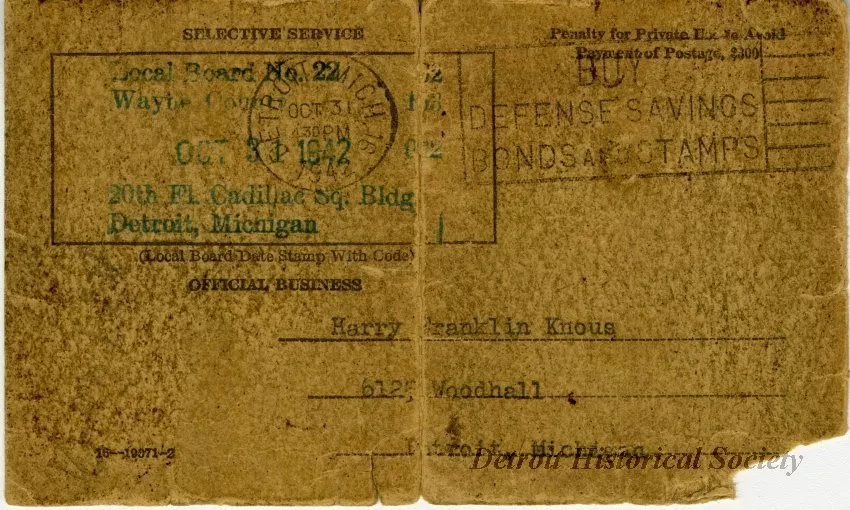 SELECTIVE SERVICE
Penalty for Private Use to Avoid
Payment of Postage, $300
Local Board No. 22 82
Wayne County 163
OCT 31 1942 022
20th Fl. Cadillac Sq. Bldg
Detroit, Michigan
DETROIT, MICH.
OCT 31
4 30 PM
1942
BUY
DEFENSE SAVINGS
BONDS AND STAMPS
(Local Board Date Stamp With Code)
OFFICIAL BUSINESS
Harry Franklin Knous
6125 Woodhall
Detroit, Michigan
16—19371-2
Detroit Historical Society